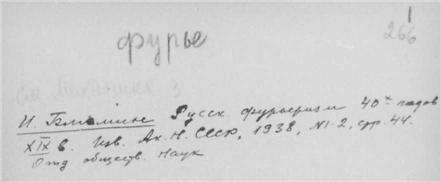 1
266
фурье
см
И. Блюмин Русск. фурьеризм 40х годов
XIX в. Изв. Ак. Н. СССР, 1938, N 1-2, стр. 44.
Отд. обществ. Наук